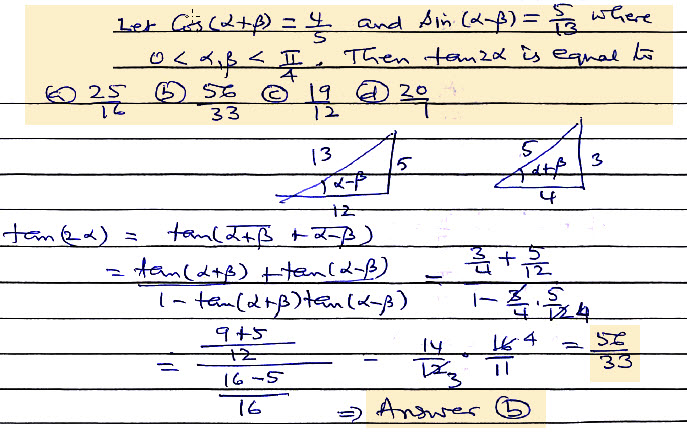 Let Cos(α+β) = 4/5 and Sin(α-β) = 5/13 where
0 < α,β < π/4. Then tan2α is equal to
(a) 25/16 (b) 56/33 (c) 19/12 (d) 20/7
13 5 α-β 12
5 3 α+β 4
tan(2α) = tan(α+β + α-β)
= tan(α+β) + tan(α-β) / 1 - tan(α+β)tan(α-β) = 3/4 + 5/12 / 1 - 3/4 · 5/12 4
= 9+5/12 / 16-5/16 = 14/12 3 · 16/11 4 = 56/33
⇒ Answer (b)